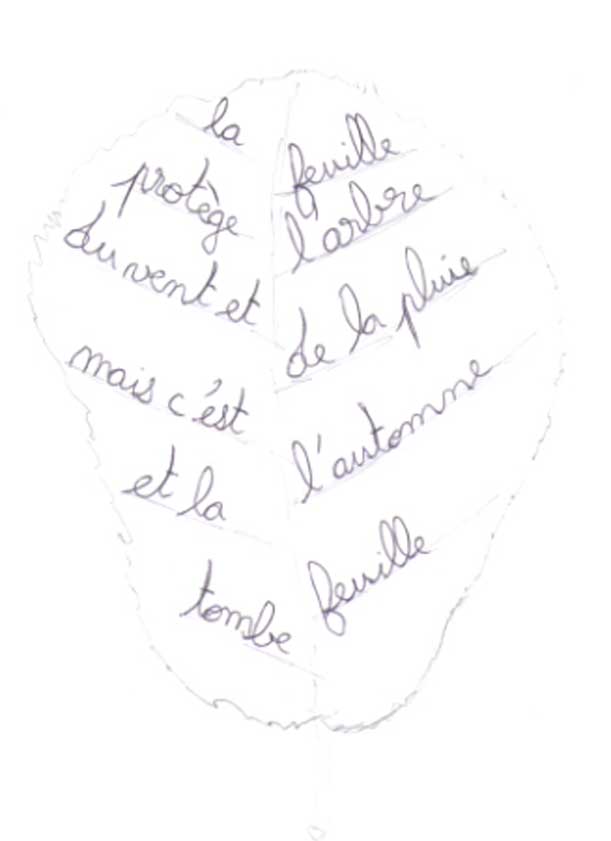 la feuille
protège l'arbre
du vent et de la pluie
mais c'est l'automne
et la feuille
tombe